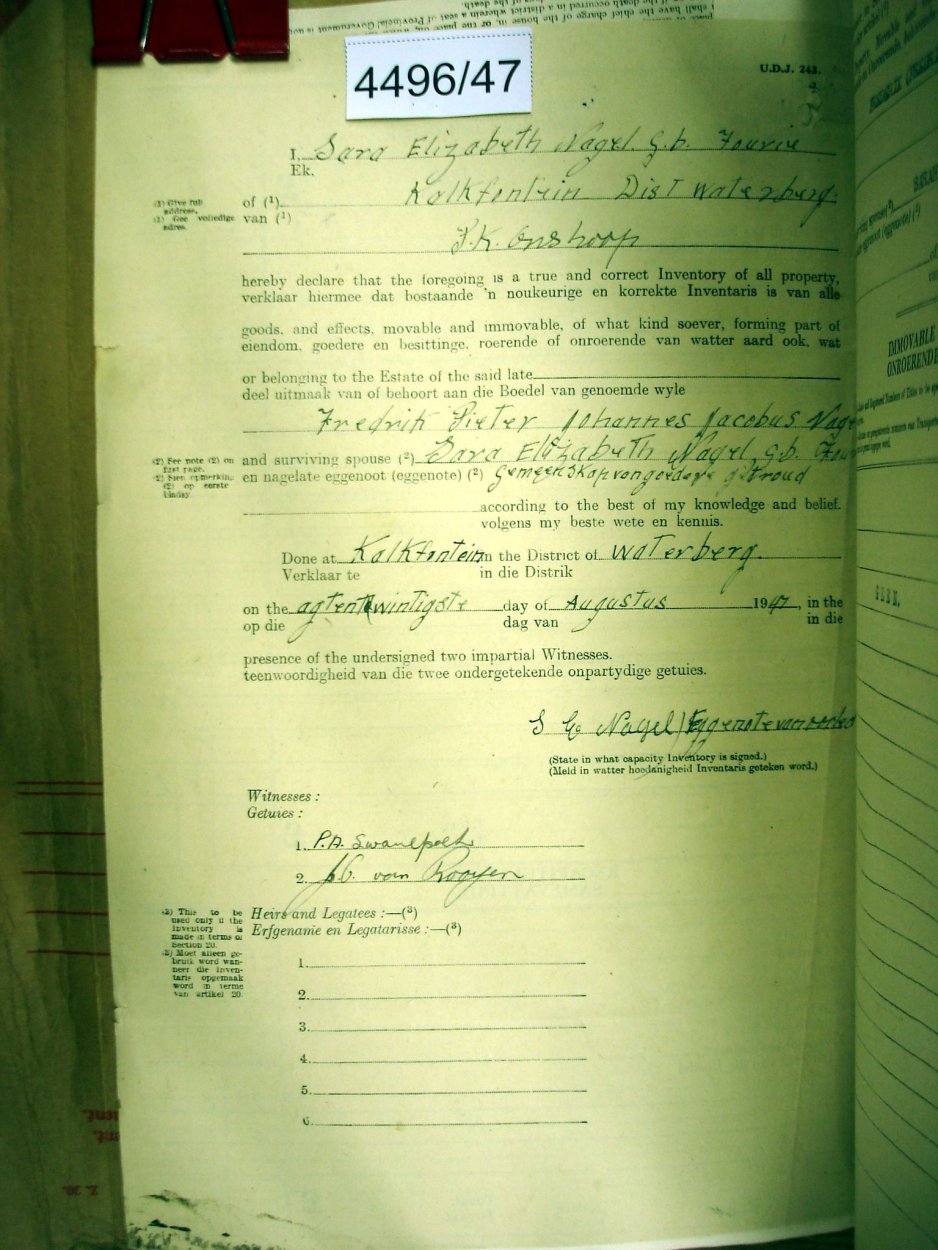 4496/47
U.D.J. 243.
I, Sara Elizabeth Nagel. G.b. Fourie
Ek,
(1) Give full address.
(1) Gee volledige adres.
of (1) Kalkfontein Dist Waterberg.
van (1)
P.K. Onshoop
hereby declare that the foregoing is a true and correct Inventory of all property,
verklaar hiermee dat bostaande 'n noukeurige en korrekte Inventaris is van alle
goods, and effects, movable and immovable, of what kind soever, forming part of
eiendom, goedere en besittinge, roerende of onroerende van watter aard ook, wat
or belonging to the Estate of the said late
deel uitmaak van of behoort aan die Boedel van genoemde wyle
Fredrik Pieter Johannes Jacobus Nage
(2) See note (2) on first page.
(2) Sien opmerking (2) op eerste bladsy.
and surviving spouse (2) Sara Elizabeth Nagel G.b. Four
en nagelate eggenoot (eggenote) (2) Gemeenskap van goedere getroud
according to the best of my knowledge and belief.
volgens my beste wete en kennis.
Done at Kalkfontein in the District of Waterberg.
Verklaar te in die Distrik
on the agtentwintigste day of Augustus 1947, in the
op die dag van in die
presence of the undersigned two impartial Witnesses.
teenwoordigheid van die twee ondergetekende onpartydige getuies.
S E Nagel / Eggenote van
(State in what capacity Inventory is signed.)
(Meld in watter hoedanigheid Inventaris geteken word.)
Witnesses :
Getuies :
1. P.A. Swanepoel
2. van Rooyen
(3) This to be used only if the Inventory is made in terms of Section 20.
(3) Moet alleen gebruik word wanneer die Inventaris opgemaak word in terme van artikel 20.
Heirs and Legatees :—(3)
Erfgename en Legatarisse :—(3)
1.
2.
3.
4.
5.
6.